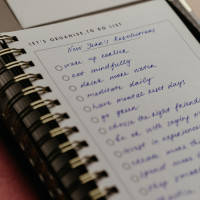 LET'S ORGANISE TO DO LIST
New Year's Resolutions
wake up earlier
eat mindfully
drink more water
meditate daily
have mental rest days
go green
choose the right friends
be ok with saying no
invest in experiences
more
spend more